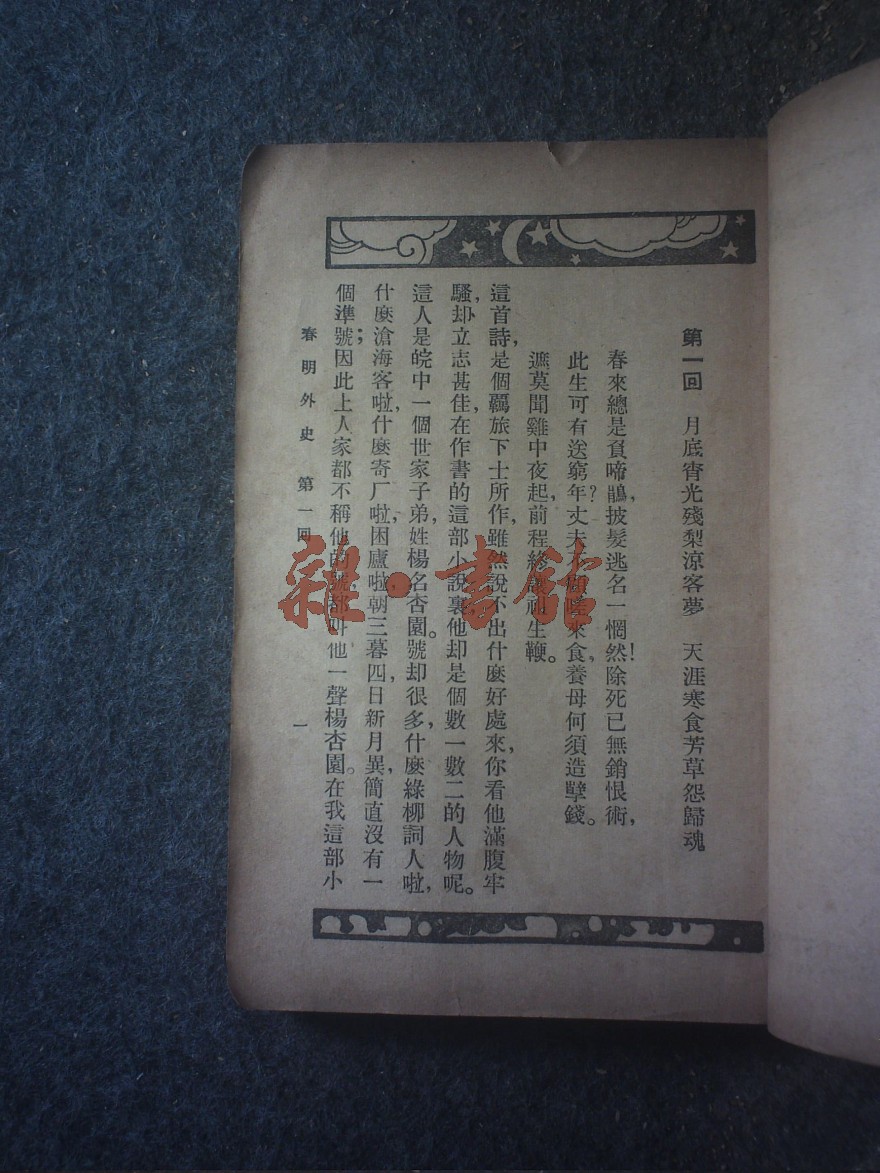 第一回　月底宵光殘梨涼客夢　天涯寒食芳草怨歸魂
春來總是負啼鵑，披髮逃名一惘然！除死已無銷恨術，
此生可有送窮年？丈夫來食，養母何須造孽錢。
遮莫聞雞中夜起，前程生鞭。
這首詩，是個羈旅下士所作，雖然說不出什麼好處來，你看他滿腹牢
騷，却立志甚佳，在作書的這部小說裏，他却是個數一數二的人物呢。
這人是皖中一個世家子弟，姓楊名杏園。號却很多，什麼綠柳詞人啦，
什麼滄海客啦，什麼寄厂啦，困廬啦，朝三暮四，日新月異，簡直沒有一
個準號；因此上人家都不稱他的號，都叫他一聲楊杏園。在我這部小
春明外史　第一回　一
雜・書館